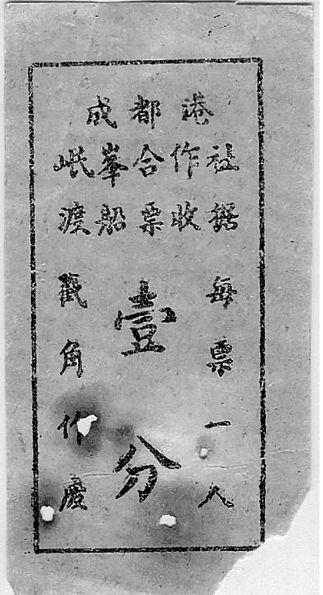 成都港
岷峯合作社
渡船票收据
每票一人
壹分
截角作废